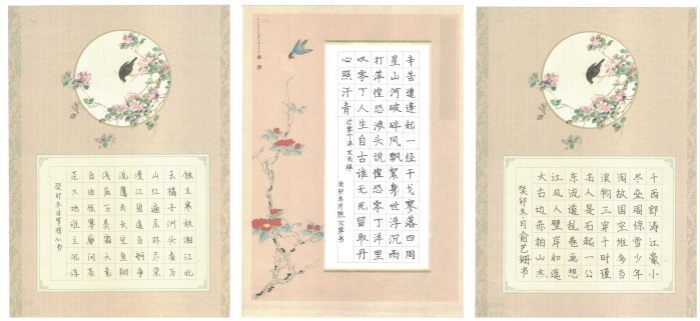 独立寒秋湘江北
去橘子洲头看万
山红遍层林尽染
漫江碧透百舸争
流鹰击长空鱼翔
浅底万类霜天竞
自由怅寥廓问苍
茫大地谁主沉浮
癸卯冬日书
辛苦遭逢起一经干戈寥落四周
星山河破碎风飘絮身世浮沉雨
打萍惶恐滩头说惶恐零丁洋里
叹零丁人生自古谁无死留取丹
心照汗青
过零丁洋文天祥
癸卯冬月熊文翠书
大江东去浪淘尽千
古风流人物故垒西
边人道是三国周郎
赤壁乱石穿空惊涛
拍岸卷起千堆雪江
山如画一时多少豪
杰遥想公瑾当年小
癸卯冬日俞艺珊书